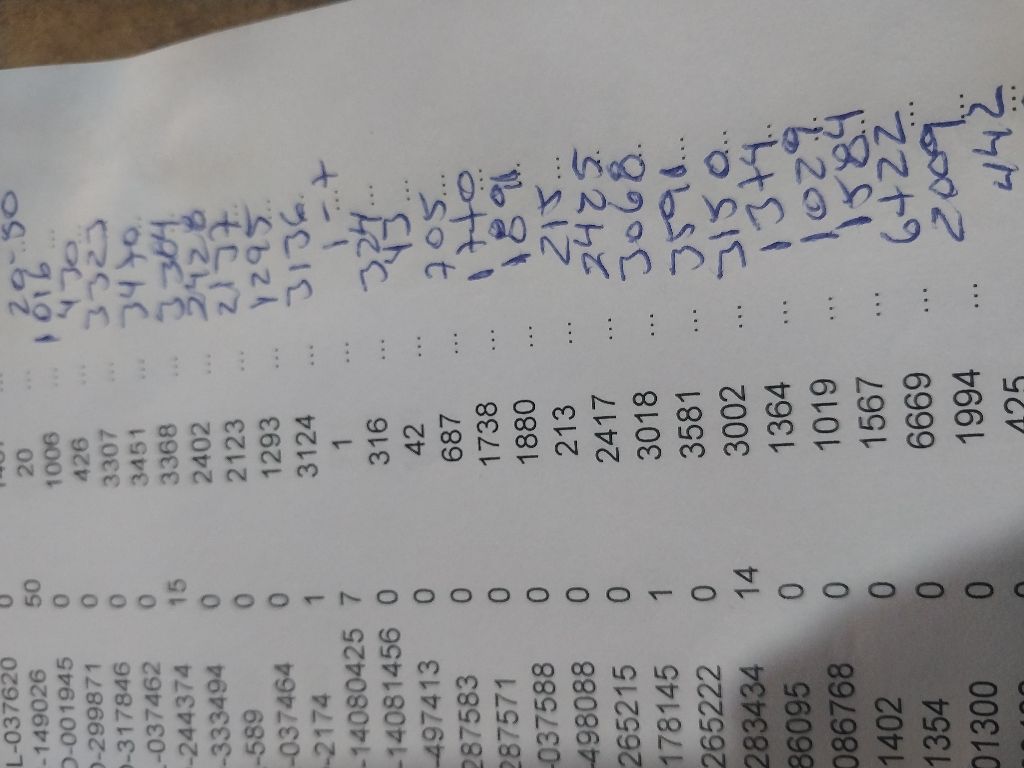 L-037620 0 ...
-149026 50 20 ... 29-50
D-001945 0 1006 ... 1016 ...
-299871 0 426 ... 430 ...
-317846 0 3307 ... 3323
-037462 0 3451 ... 3470
-244374 15 3368 ... 3384
-333494 0 2402 ... 2428
-589 0 2123 ... 2137
-037464 0 1293 ... 1295
-2174 1 3124 ... 3136
-14080425 7 1 ... 1-7
-14081456 0 316 ... 324 ...
-497413 0 42 ... 43 ...
287583 0 687 ... 705 ...
287571 0 1738 ... 1740
-037588 0 1880 ... 1891
-498088 0 213 ... 215 ...
265215 0 2417 ... 2425
178145 1 3018 ... 3068
265222 0 3581 ... 3591 ...
283434 14 3002 ... 3150
86095 0 1364 ... 1374
086768 0 1019 ... 1029
1402 0 1567 ... 1584
1354 0 6669 ... 6722
01300 0 1994 ... 2009
0 425 442